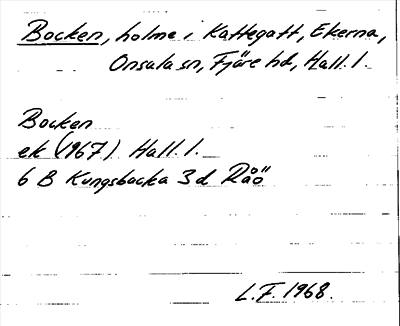 Bocken, holme i Kattegatt, Ekerna,
Onsala sn, Fjäre hd, Hall. l.
Bocken
ek (1967) Hall. l.
6 B Kungsbacka 3 d Råö
L.F. 1968.